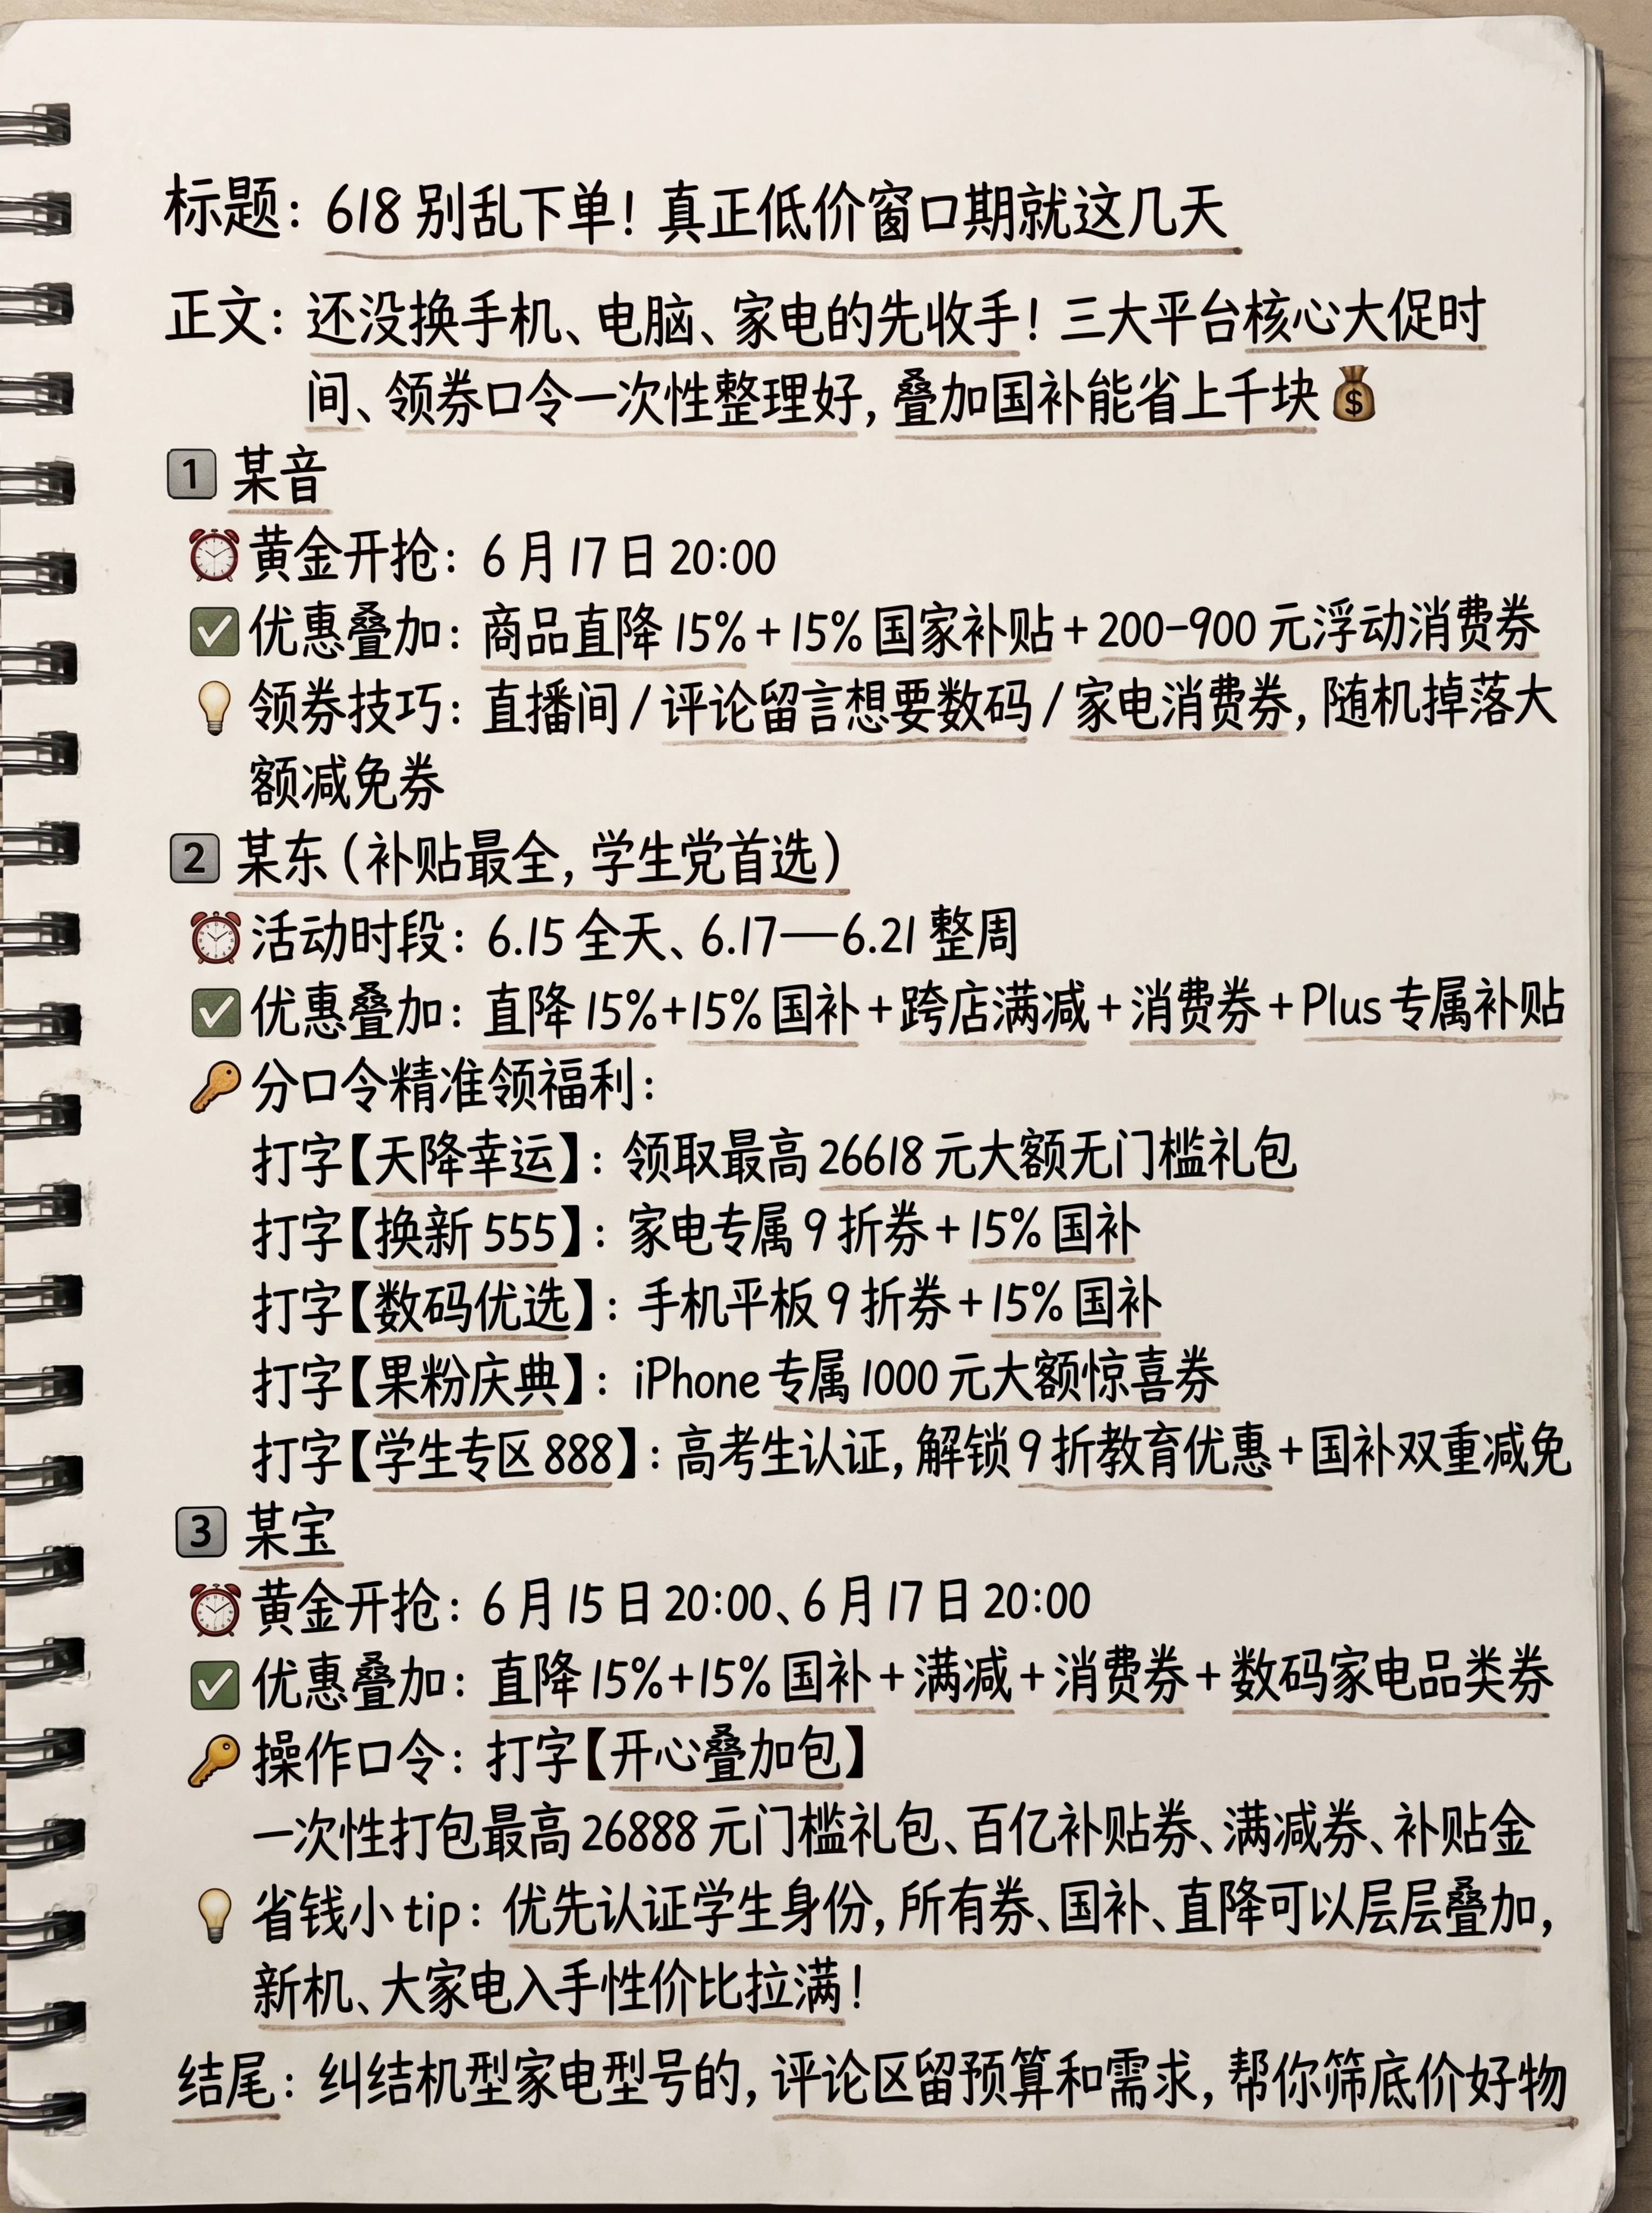 标题：618 别乱下单！真正低价窗口期就这几天
正文：还没换手机、电脑、家电的先收手！三大平台核心大促时
间、领券口令一次性整理好，叠加国补能省上千块💰
1️⃣ 某音
⏰黄金开抢：6 月 17 日 20:00
✅优惠叠加：商品直降 15%+15% 国家补贴+200-900 元浮动消费券
💡领券技巧：直播间/评论留言想要数码/家电消费券，随机掉落大
额减免券
2️⃣ 某东（补贴最全，学生党首选）
⏰活动时段：6.15 全天、6.17——6.21 整周
✅优惠叠加：直降 15%+15% 国补+跨店满减+消费券+Plus 专属补贴
🔑分口令精准领福利：
打字【天降幸运】：领取最高 26618 元大额无门槛礼包
打字【换新 555】：家电专属 9 折券+15% 国补
打字【数码优选】：手机平板 9 折券+15% 国补
打字【果粉庆典】：iPhone 专属 1000 元大额惊喜券
打字【学生专区 888】：高考生认证，解锁 9 折教育优惠+国补双重减免
3️⃣ 某宝
⏰黄金开抢：6 月 15 日 20:00、6 月 17 日 20:00
✅优惠叠加：直降 15%+15% 国补+满减+消费券+数码家电品类券
🔑操作口令：打字【开心叠加包】
一次性打包最高 26888 元门槛礼包、百亿补贴券、满减券、补贴金
💡省钱小 tip：优先认证学生身份，所有券、国补、直降可以层层叠加，
新机、大家电入手性价比拉满！
结尾：纠结机型家电型号的，评论区留预算和需求，帮你筛底价好物